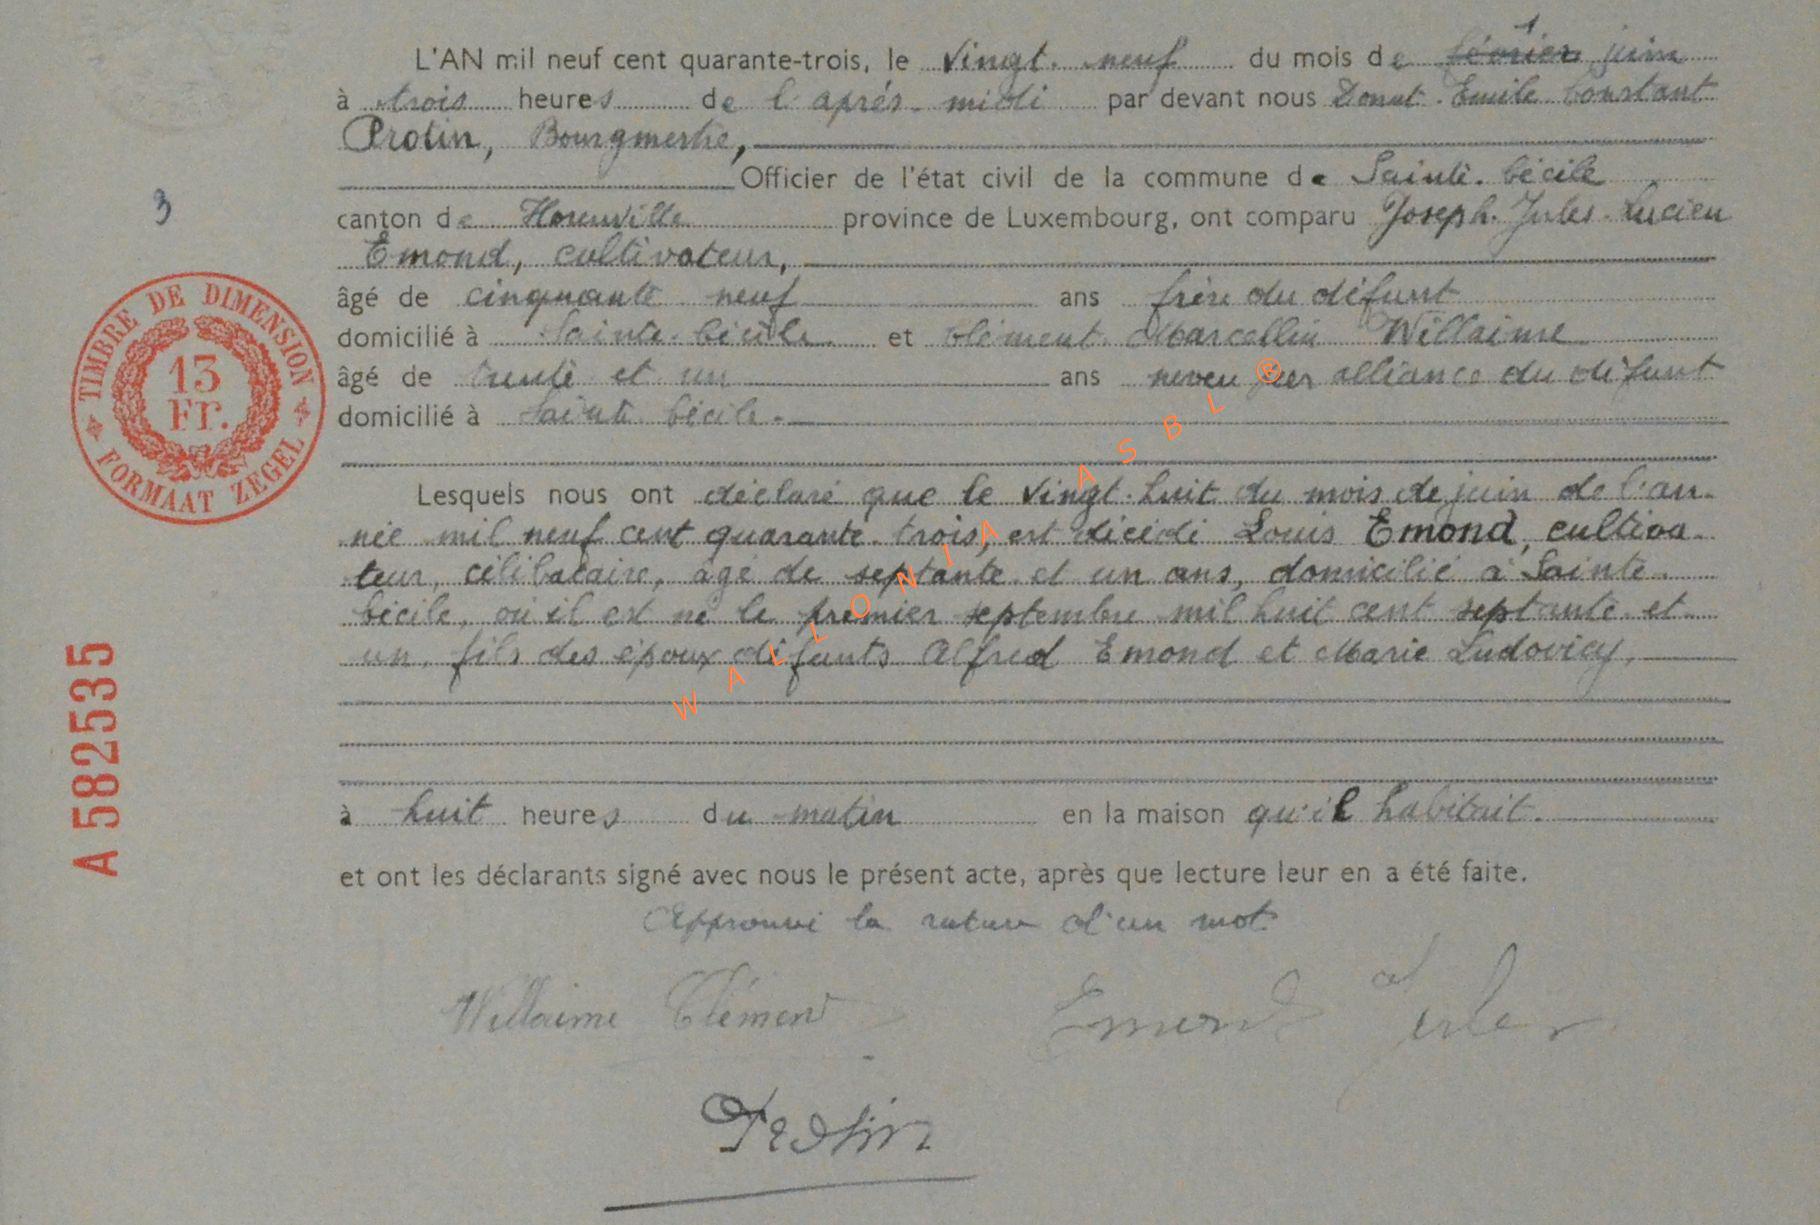 L'AN mil neuf cent quarante-trois, le vingt-neuf du mois de février juin
à trois heures de l'après-midi par devant nous Donat-Emile Constant
Protin, Bourgmestre,
Officier de l'état civil de la commune de Sainte-Cécile
3
canton de Florenville province de Luxembourg, ont comparu Joseph-Jules-Lucien
Emond, cultivateur,
âgé de cinquante neuf ans frère du défunt
domicilié à Sainte-Cécile et Clément Marcellin Willaime
âgé de trente et un ans neveu par alliance du défunt
domicilié à Sainte-Cécile.
TIMBRE DE DIMENSION
13
Fr.
FORMAAT ZEGEL
Lesquels nous ont déclaré que le vingt-huit du mois de juin de l'an-
née mil neuf cent quarante-trois, est décédé Louis Emond, cultiva-
teur, célibataire, âgé de septante et un ans, domicilié à Sainte-
Cécile, où il est né le premier septembre mil huit cent septante et
un, fils des époux défunts Alfred Emond et Marie Ludovicy,
WALLONIA ASBL ®
A 582535
à huit heures du matin en la maison qu'il habitait.
et ont les déclarants signé avec nous le présent acte, après que lecture leur en a été faite.
Approuvé la rature d'un mot
Willaime Clément Emond Jules
Protin